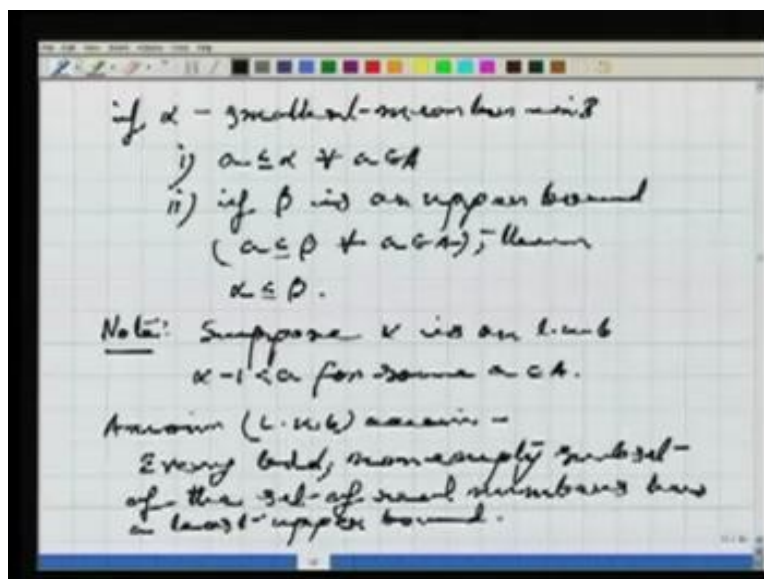 if α - smallest number in B
i) a ≤ α ∀ a ∈ A
ii) if β is an upper bound
(a ≤ β ∀ a ∈ A), then
α ≤ β.
Note: Suppose α is an l.u.b
α - 1 < a for some a ∈ A.
Axiom (L.u.b) axiom -
Every bdd, nonempty subset
of the set of real numbers has
a least upper bound.